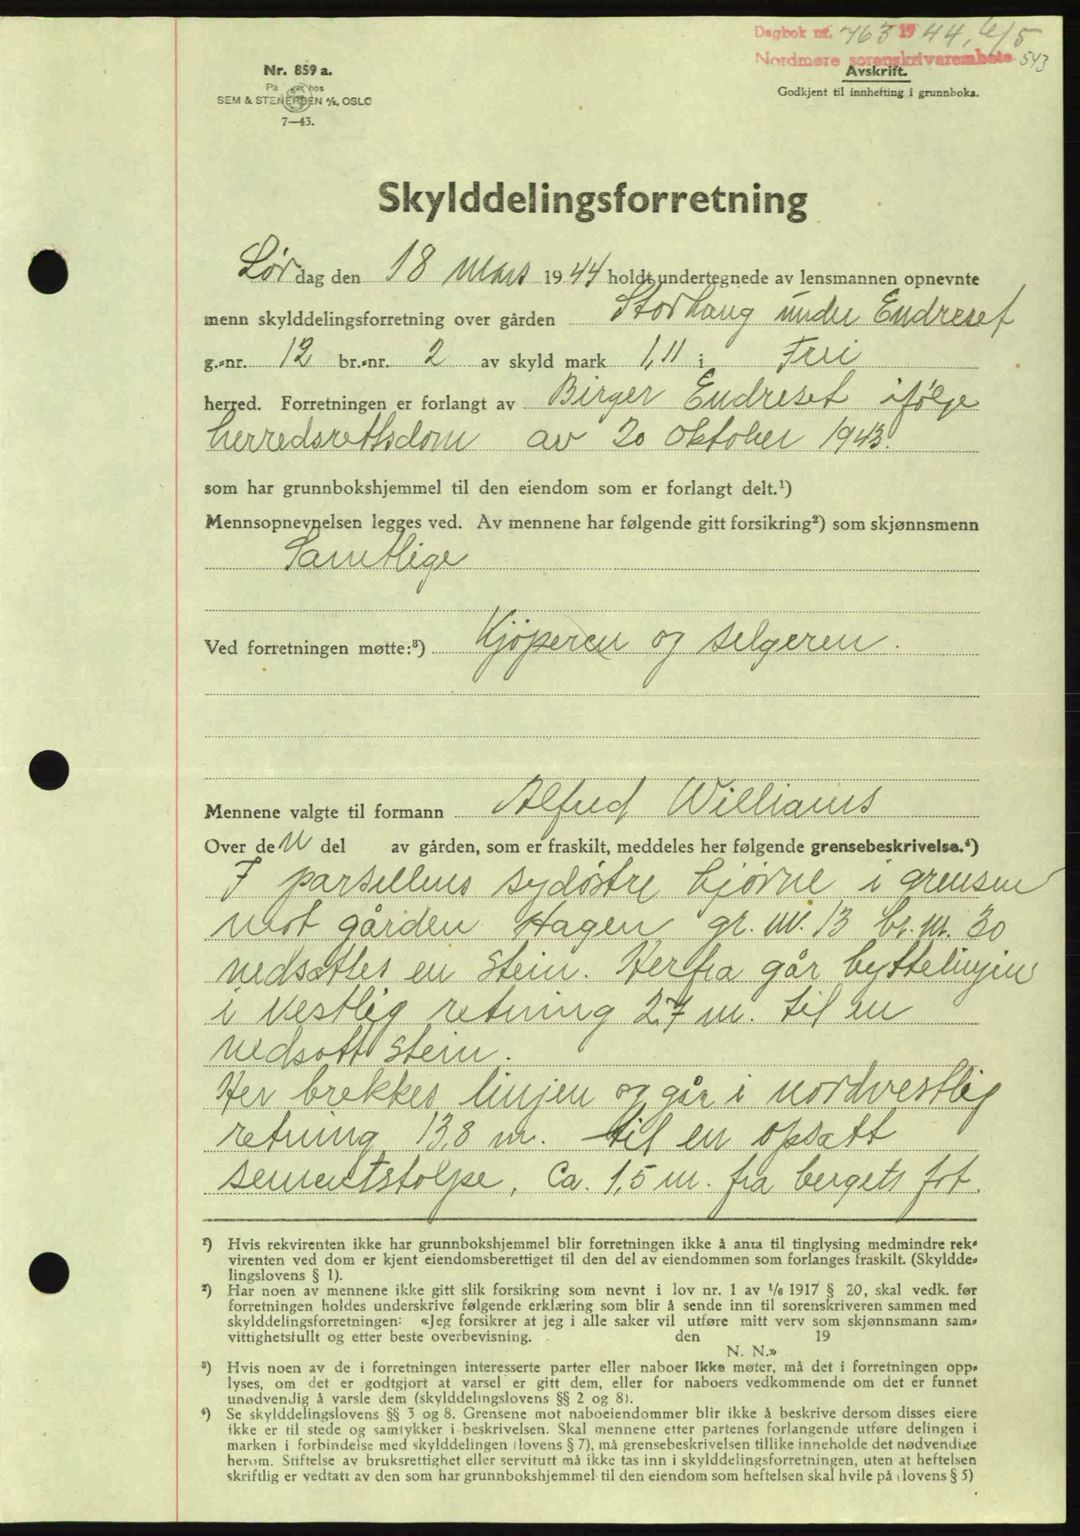 Dagbok nr. 763 1944, 6/5
Nordmøre sorenskrivarembete 543
Nr. 859 a.
SEM & STENERSEN A/S, OSLO
7—43.
Avskrift.
Godkjent til innhefting i grunnboka.
Skylddelingsforretning
Lørdag den 18 mars 1944 holdt undertegnede av lensmannen opnevnte
menn skylddelingsforretning over gården Storhaug under Endreset
g.-nr. 12 br.-nr. 2 av skyld mark 1,11 i Frei
herred. Forretningen er forlangt av Birger Endreset ifølge
herredsrettsdom av 20 oktober 1943.
som har grunnbokshjemmel til den eiendom som er forlangt delt.¹)
Mennsopnevnelsen legges ved. Av mennene har følgende gitt forsikring²) som skjønnsmenn
Samtlige
Ved forretningen møtte:³) Kjøperen og selgeren.
Mennene valgte til formann Alfred Williams
Over den del av gården, som er fraskilt, meddeles her følgende grensebeskrivelse.⁴)
I parsellens sydøstre hjørne i grensen
mot gården Hagen gr. nr. 13 br. nr. 30
nedsattes en stein. Herfra går byttelinjen
i vestlig retning 27 m. til en
nedsatt stein.
Her brekkes linjen og går i nordvestlig
retning 13,8 m. til en opsatt
sementstolpe, ca. 1,5 m. fra bergets fot.
¹) Hvis rekvirenten ikke har grunnbokshjemmel blir forretningen ikke å anta til tinglysing medmindre rek-
virenten ved dom er kjent eiendomsberettiget til den del av eiendommen som forlanges fraskilt. (Skyldde-
lingslovens § 1).
²) Har noen av mennene ikke gitt slik forsikring som nevnt i lov nr. 1 av 1/6 1917 § 20, skal vedk. før
forretningen holdes underskrive følgende erklæring som blir å sende inn til sorenskriveren sammen med
skylddelingsforretningen: «Jeg forsikrer at jeg i alle saker vil utføre mitt verv som skjønnsmann sam-
vittighetsfullt og etter beste overbevisning. den 19
N. N.»
³) Hvis noen av de i forretningen interesserte parter eller naboer ikke møter, må det i forretningen opp-
lyses, om det er godtgjort at varsel er gitt dem, eller for naboers vedkommende om det er funnet
unødvendig å varsle dem (skylddelingslovens §§ 2 og 8).
⁴) Se skylddelingslovens §§ 3 og 8. Grensene mot naboeiendommer blir ikke å beskrive dersom disses eiere
ikke er til stede og samtykker i beskrivelsen. Skal mennene etter partenes forlangende utføre delingen i
marken i forbindelse med skylddelingen (lovens § 7), må grensebeskrivelsen tillike inneholde det nødvendige
herom. Stiftelse av bruksrettighet eller servitutt må ikke tas inn i skylddelingsforretningen, uten at heftelsen
skriftlig er vedtatt av den som har grunnbokshjemmel til den eiendom som heftelsen skal hvile på (lovens § 5)